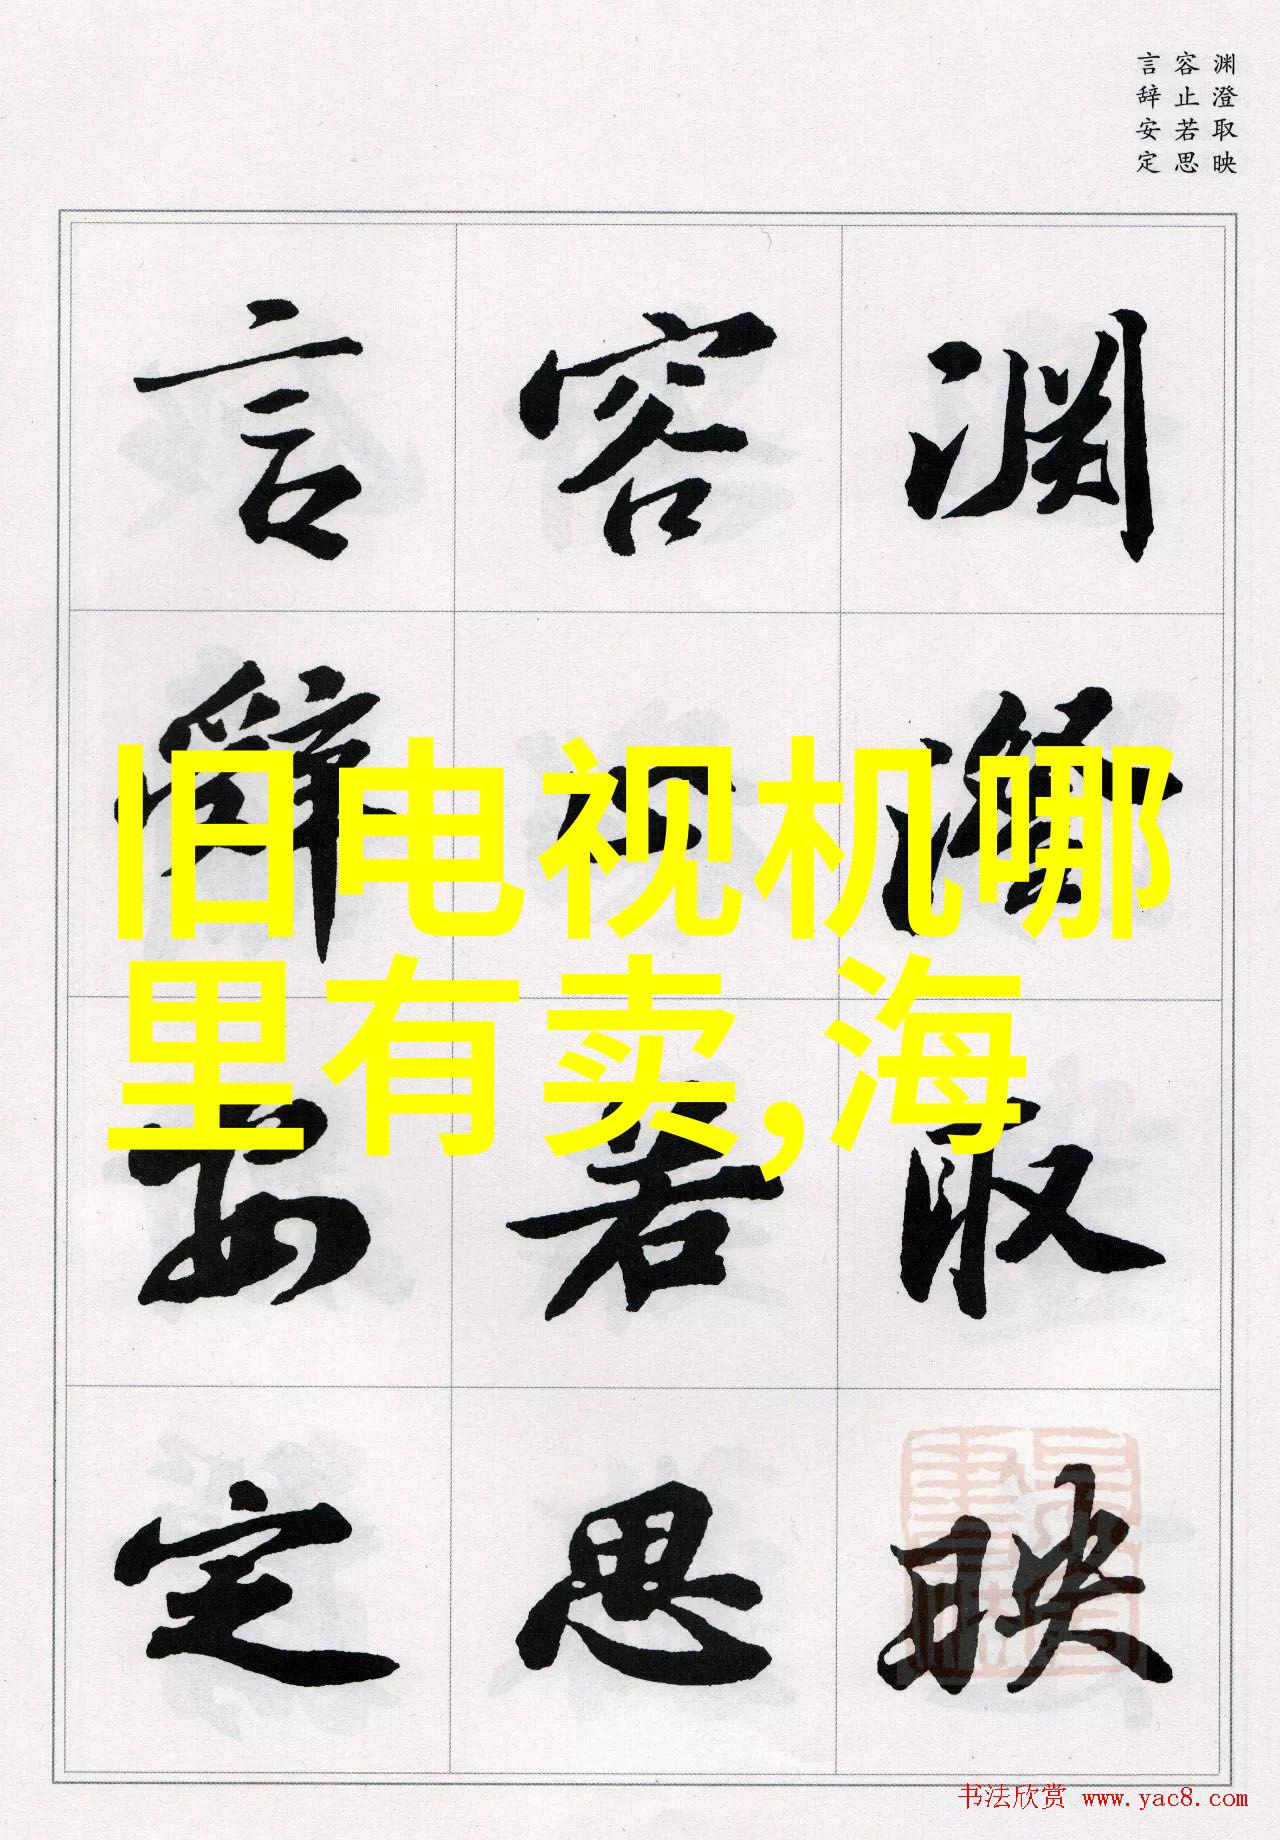 渊澄取映
容止若思
言辞安定
渊澄取映
容止若思
言辞安定
旧电视机哪
里有卖,海
书法欣赏 www.yac8.com